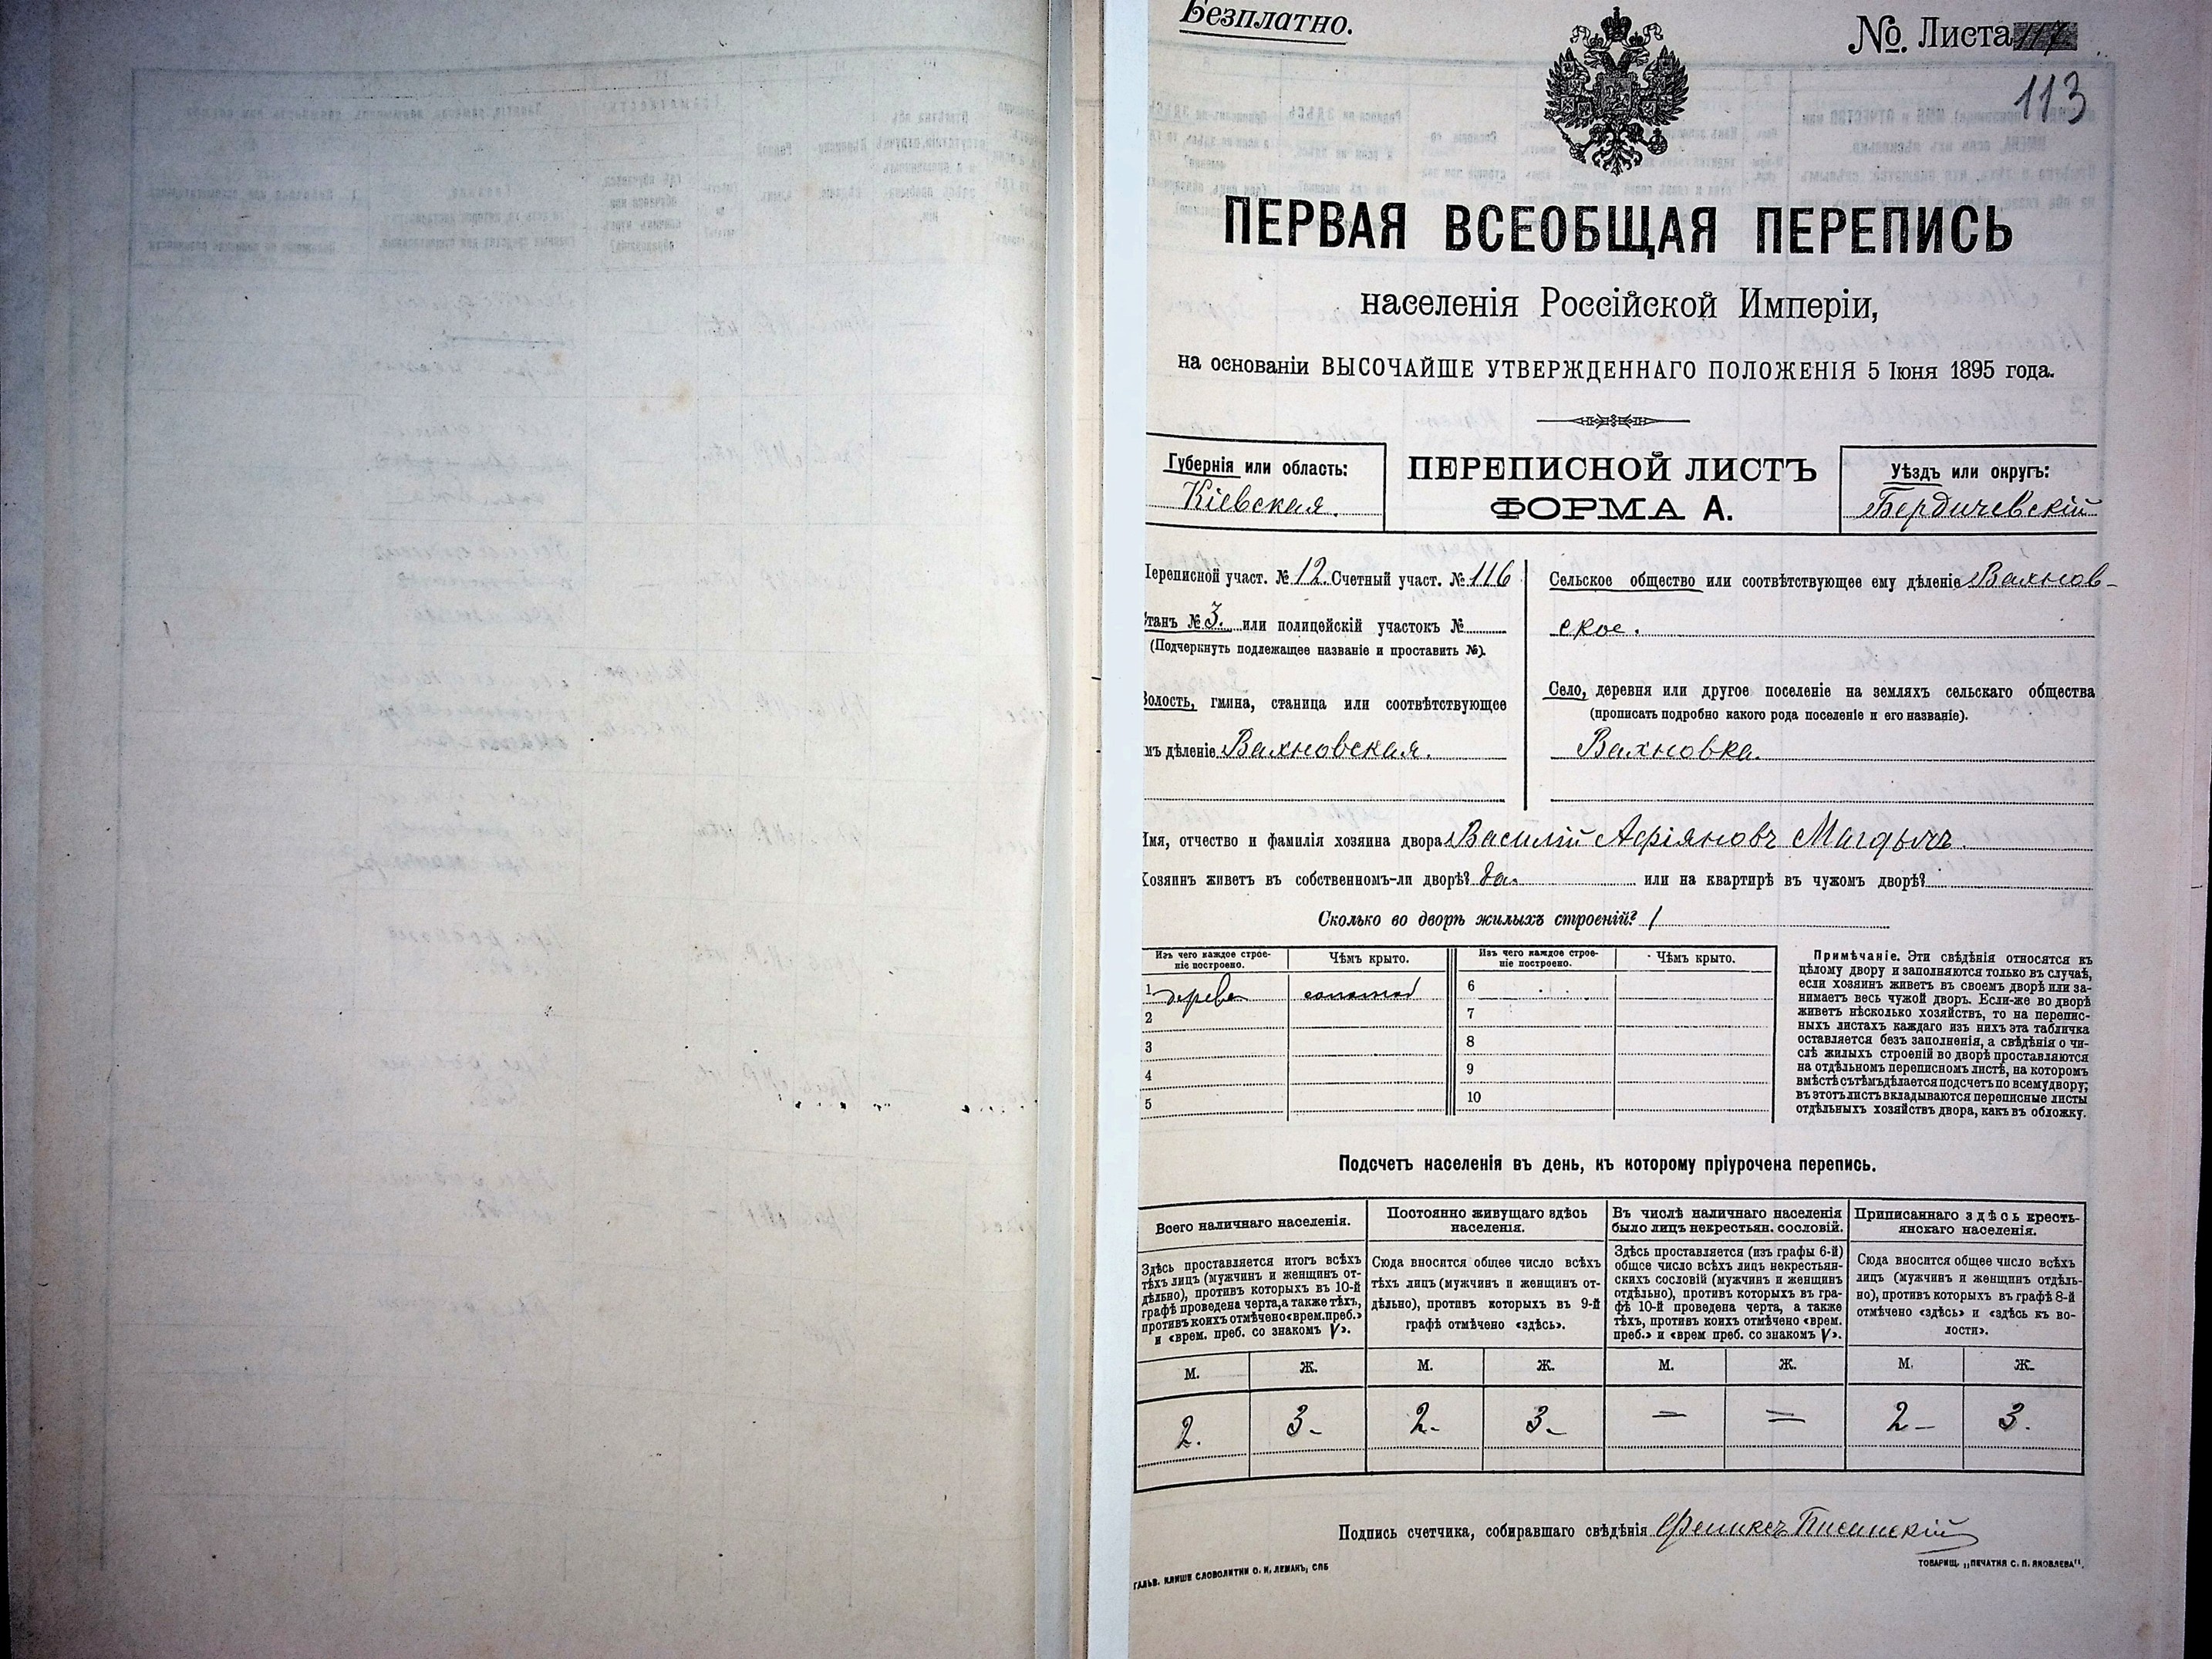 Безплатно.
№. Листа
113
ПЕРВАЯ ВСЕОБЩАЯ ПЕРЕПИСЬ
населенія Россійской Имперіи,
на основаніи ВЫСОЧАЙШЕ УТВЕРЖДЕННАГО ПОЛОЖЕНІЯ 5 Іюня 1895 года.
Губернія или область:
Кіевская.
ПЕРЕПИСНОЙ ЛИСТЪ
ФОРМА А.
Уѣздъ или округъ:
Бердичевскій
Переписной участ. № 12. Счетный участ. № 116
Станъ № 3. или полицейскій участокъ №
(Подчеркнуть подлежащее названіе и проставить №).
Волость, гмина, станица или соотвѣтствующее
имъ дѣленіе Вахновская.
Сельское общество или соотвѣтствующее ему дѣленіе Вахнов-
ское.
Село, деревня или другое поселеніе на земляхъ сельскаго общества
(прописать подробно какого рода поселеніе и его названіе).
Вахновка.
Имя, отчество и фамилія хозяина двора Василій Афіяновъ Магдычъ.
Хозяинъ живетъ въ собственномъ-ли дворѣ? да. или на квартирѣ въ чужомъ дворѣ?
Сколько во дворѣ жилыхъ строеній? 1
Изъ чего каждое строе-
ніе построено.
Чѣмъ крыто.
Изъ чего каждое строе-
ніе построено.
Чѣмъ крыто.
1 дерева соломой 6
2 7
3 8
4 9
5 10
Примѣчаніе. Эти свѣдѣнія относятся къ
цѣлому двору и заполняются только въ случаѣ,
если хозяинъ живетъ въ своемъ дворѣ или за-
нимаетъ весь чужой дворъ. Если-же во дворѣ
живетъ нѣсколько хозяйствъ, то на перепис-
ныхъ листахъ каждаго изъ нихъ эта табличка
оставляется безъ заполненія, а свѣдѣнія о чи-
слѣ жилыхъ строеній во дворѣ проставляются
на отдѣльномъ переписномъ листѣ, на которомъ
вмѣстѣ съ тѣмъ дѣлается подсчетъ по всему двору;
въ этотъ листъ вкладываются переписные листы
отдѣльныхъ хозяйствъ двора, какъ въ обложку.
Подсчетъ населенія въ день, къ которому пріурочена перепись.
Всего наличнаго населенія.
Здѣсь проставляется итогъ всѣхъ
тѣхъ лицъ (мужчинъ и женщинъ от-
дѣльно), противъ которыхъ въ 10-й
графѣ проведена черта, а также тѣхъ,
противъ коихъ отмѣчено «врем. преб.»
и «врем. преб. со знакомъ V».
Постоянно живущаго здѣсь
населенія.
Сюда вносится общее число всѣхъ
тѣхъ лицъ (мужчинъ и женщинъ от-
дѣльно), противъ которыхъ въ 9-й
графѣ отмѣчено «здѣсь».
Въ числѣ наличнаго населенія
было лицъ некрестьян. сословій.
Здѣсь проставляется (изъ графы 6-й)
общее число всѣхъ лицъ некрестьян-
скихъ сословій (мужчинъ и женщинъ
отдѣльно), противъ которыхъ въ гра-
фѣ 10-й проведена черта, а также
тѣхъ, противъ коихъ отмѣчено «врем.
преб.» и «врем преб. со знакомъ V».
Приписаннаго здѣсь кресть-
янскаго населенія.
Сюда вносится общее число всѣхъ
лицъ (мужчинъ и женщинъ отдѣль-
но), противъ которыхъ въ графѣ 8-й
отмѣчено «здѣсь» и «здѣсь къ во-
лости».
М. Ж. М. Ж. М. Ж. М. Ж.
2. 3- 2.- 3- — = 2- 3.
Подпись счетчика, собиравшаго свѣдѣнія Феликсъ Писинскій
ГАЛЬВ. КЛИШЕ СЛОВОЛИТНИ О. И. ЛЕМАНЪ, СПБ
ТОВАРИЩ. „ПЕЧАТНЯ С. П. ЯКОВЛЕВА".